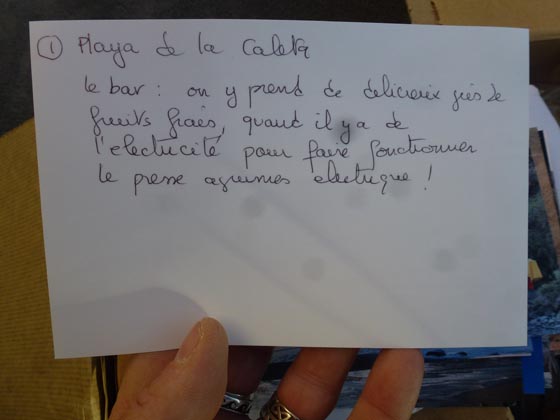 ① Playa de la Caleta
le bar : on y prend de délicieux jus de
fruits frais, quand il y a de
l'électricité pour faire fonctionner
le presse agrumes électrique !